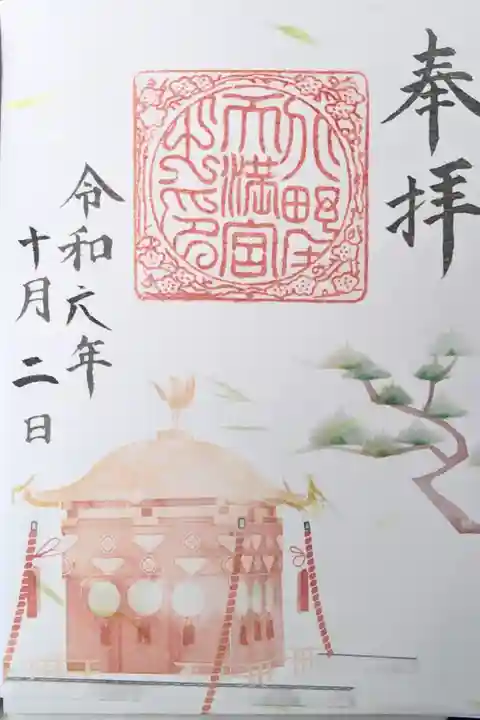 奉拝
天満宮
之印
令和六年
十月二日